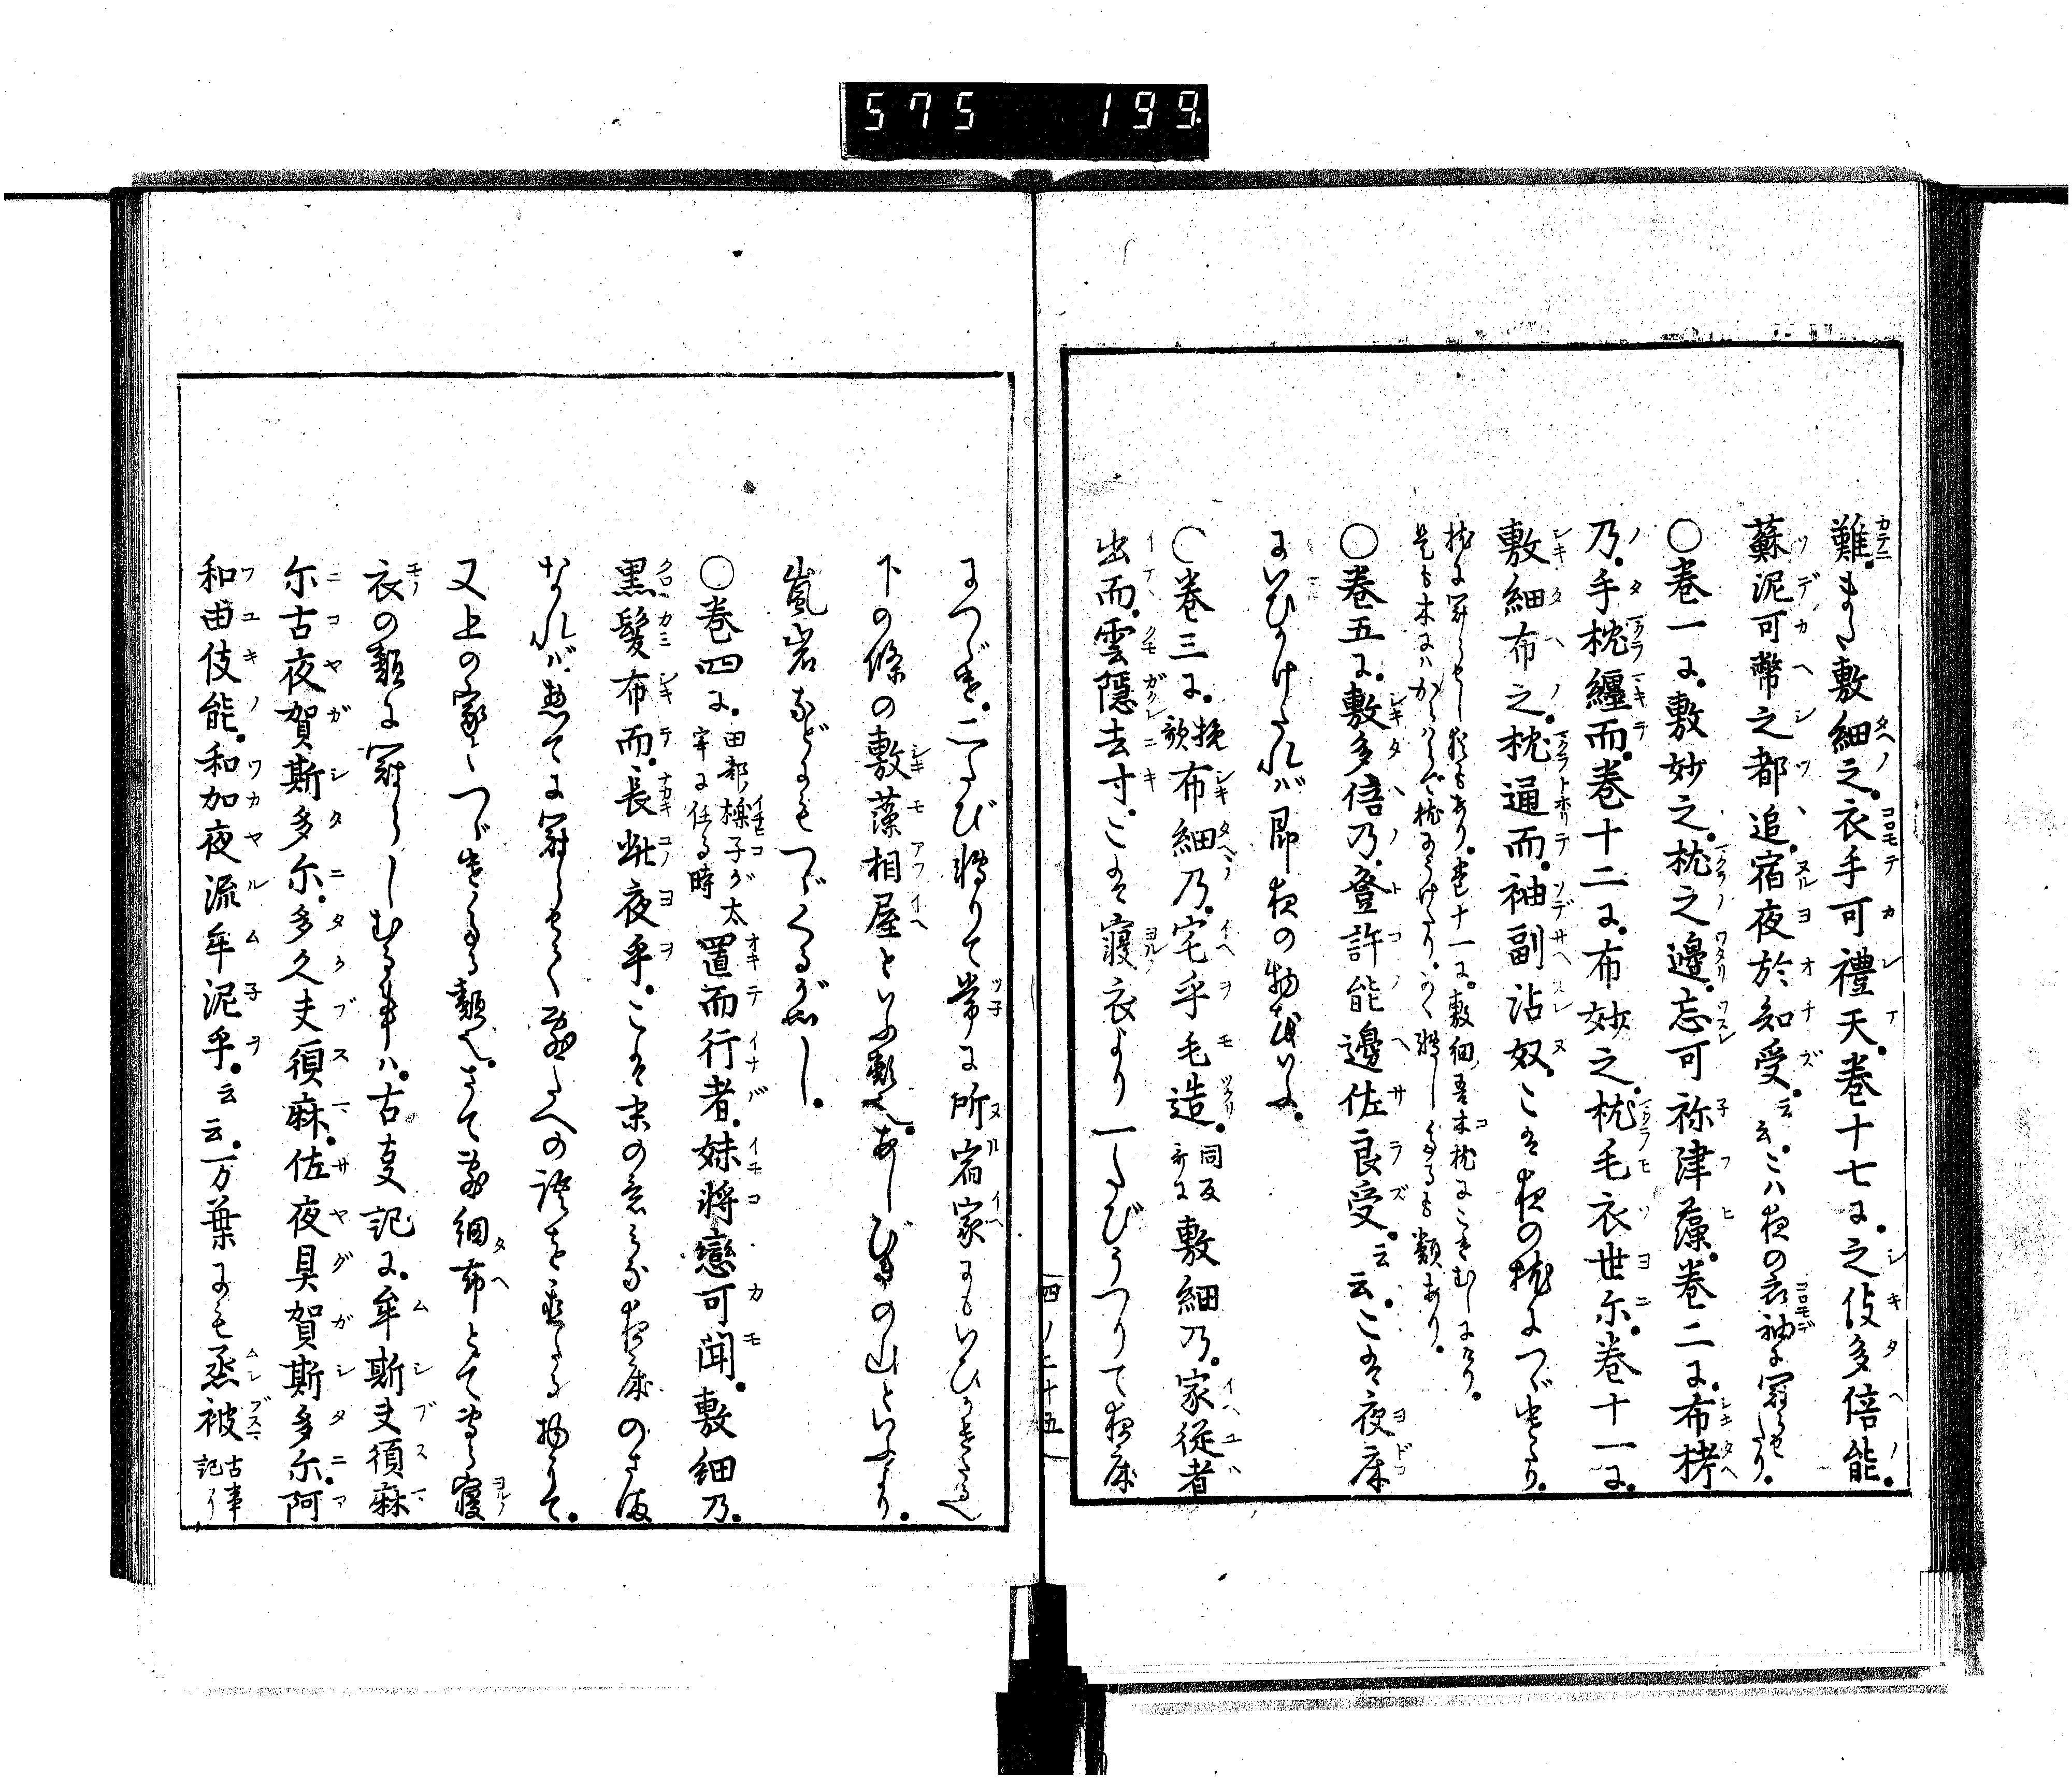 575 199
難。また敷細之。衣手可禮天。巻十七に。之伎多倍能。
蘇泥可幣之都追。宿夜於知受。云云。こハ夜の衣袖に冠らせたり。
○巻一に。敷妙之。枕之邊。忘可祢津藻。巻二に。布栲
乃。手枕纏而。巻十二に。布妙之。枕毛衣世尓。巻十一に。
敷細布之。枕通而。袖副沾奴。こは夜の枕につゞけたり。
枕に冠らせし様もあり。巻十一に。敷細ノ吾木枕に
是も木にハかゝはらで枕にかけたり。かく轉し たるも類あり。
○巻五に。敷多倍乃。登許能邊佐良受。云云。こは夜床
にいひかけたれバ即夜の物をいふ。
○巻三に。挽歌 布細乃。宅乎毛造。同反哥に 敷細乃。家従者
出而。雲隠去寸。こは寝衣より一たびうつりて夜床
四ノ二十五
につゞき。二たび轉りて常に所宿家にもいひかけたる也
下の條の敷藻相屋といふ類也。あしびきの山といふより。
嵐岩などにもつゞくるが如し。
○巻四に。田部ノ櫟子が太宰に任る時 置而行者。妹将戀可聞。敷細乃。
黒髪布而。長此夜乎。こは末の意みな夜床のさま
なれバ。惣てに冠らせて敷たへの語を重たる物にて。
又上の家につゞけたる類也。さて敷細布とて専ら寝
衣の類に冠らしむる事ハ。古事記に。牟斯夫須麻
尓古夜賀斯多尓。多久夫須麻。佐夜具賀斯多尓。阿
和由伎能。和加夜流牟泥乎。云云。万葉にも蒸被 古事記に